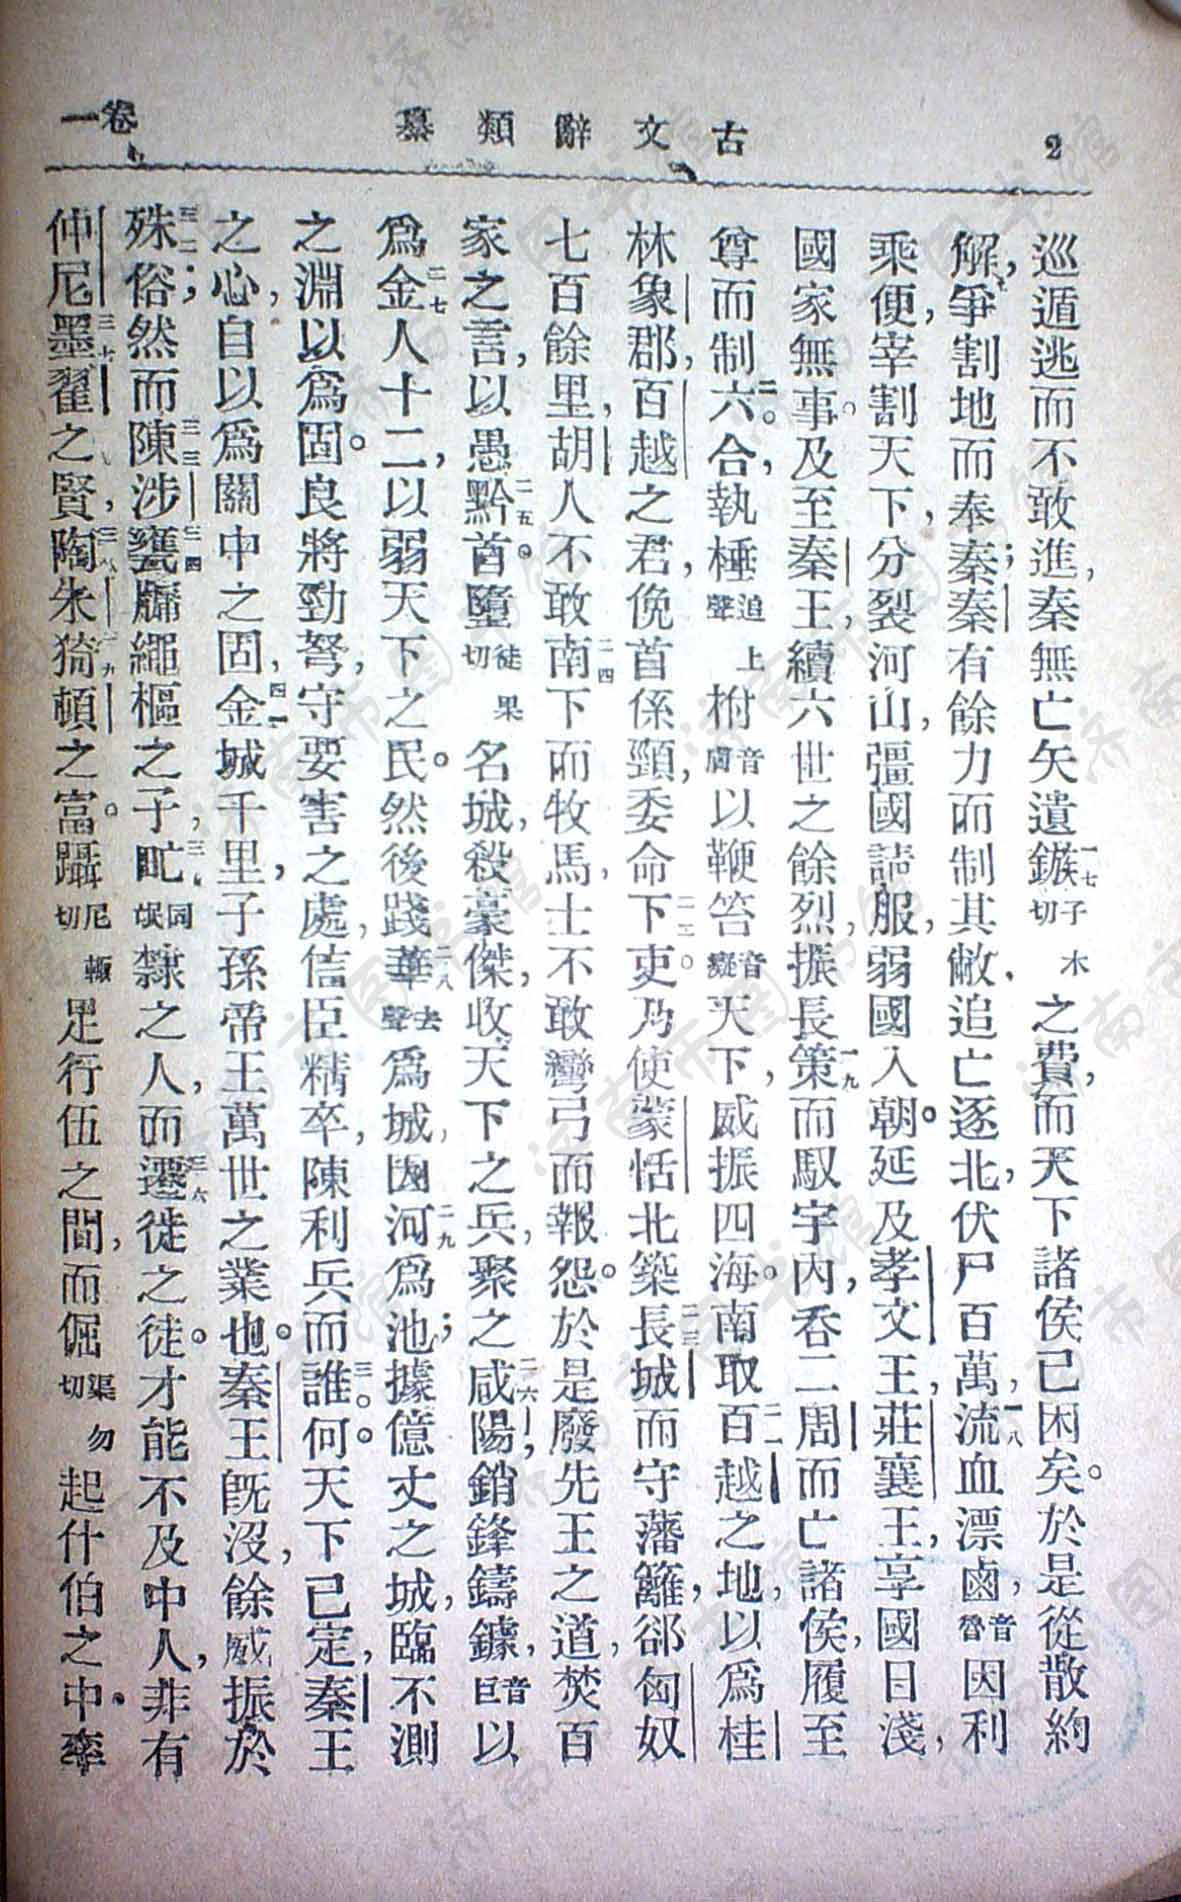 2
古文辭類纂
卷一
巡遁逃而不敢進,秦無亡矢遺鏃一七子木切之費,而天下諸侯已困矣。於是從散約
解,爭割地而奉秦;秦有餘力而制其敝,追亡逐北,伏尸百萬,流一八血漂鹵,音魯因利
乘便,宰割天下,分裂河山,彊國請服,弱國入朝。延及孝文王,莊襄王,享國日淺,
國家無事。及至秦王,續六世之餘烈,振長策一九而馭宇內,吞二周而亡諸侯,履至
尊而制六二〇合,執棰追上聲柎音膚以鞭笞音癡天下,威振四海。南取百二一越之地,以爲桂
林象郡,百越之君,俛首係頸,委命下吏。二二乃使蒙恬北築長二三城而守藩籬,郤匈奴
七百餘里,胡人不敢南二四下而牧馬,士不敢彎弓而報怨。於是廢先王之道,焚百
家之言,以愚黔二五首。墮徒果切名城,殺豪傑,收天下之兵,聚之咸二六陽,銷鋒鑄鐻,音巨以
爲金二七人十二,以弱天下之民。然後踐華二八去聲爲城,因河二九爲池;據億丈之城,臨不測
之淵以爲固。良將勁弩,守要害之處,信臣精卒,陳利兵而誰三〇何。天下已定,秦王
之心,自以爲關中之固,金三一城千里,子孫帝王萬世之業也。秦王既沒,餘威振於
殊三二俗;然而陳三三涉甕三四牖繩樞之子,甿三五同氓隸之人,而遷三六徙之徒。才能不及中人,非有
仲尼墨三七翟之賢,陶三八朱猗三九頓之富。躡尼輒切足行伍之間,而倔渠勿切起什伯之中,率